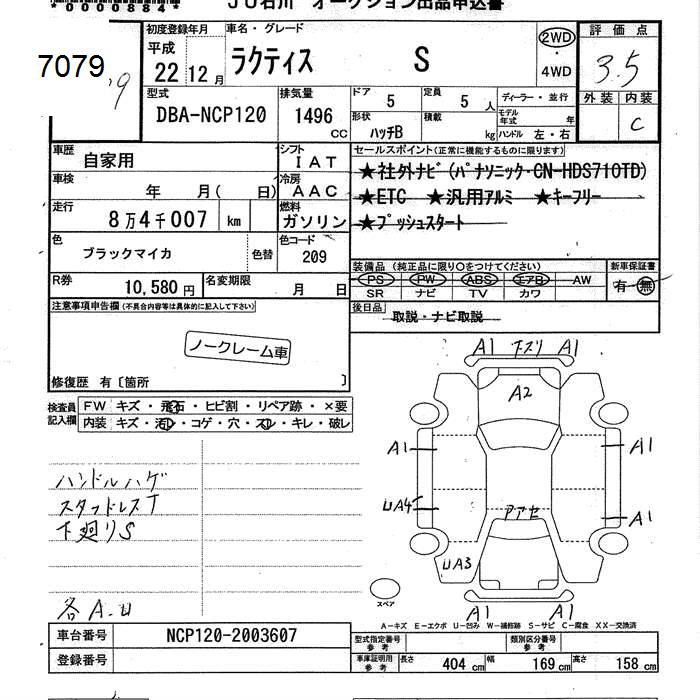 *0000884*
JU石川 オークション出品申込書
7079
9
初度登録年月 車名・グレード
平成
22 12月 ラクティス S
2WD
・
4WD
評価点
3.5
外装 内装
C
型式
DBA-NCP120
排気量
1496
CC
ドア 5 定員 5 人
形状 ハッチB 積載 kg
ディーラー・並行
モデル年式 年
ハンドル 左・右
車歴 自家用
シフト IAT
車検 年 月( 日)
冷房 AAC
走行 8万4千007 km
燃料 ガソリン
色 ブラックマイカ 色替
色コード 209
R券 10,580円
名変期限 月 日
セールスポイント(正常に機能するものに限ります)
★社外ナビ(パナソニック・CN-HDS710TD)
★ETC ★汎用アルミ ★キーフリー
★プッシュスタート
装備品(純正品に限り○をつけてください)
PS PW ABS エアB AW
SR ナビ TV カワ
新車保証書
有・無
後日品 取説・ナビ取説
注意事項申告欄(不具合内容等は具体的に記入して下さい)
ノークレーム車
修復歴 有〔箇所 〕
検査員記入欄
FW キズ・飛石・ヒビ割・リペア跡・×要
内装 キズ・汚レ・コゲ・穴・スレ・キレ・破レ
ハンドルハゲ
スタッドレスT
下廻りS
各A.U
A1 下スリ A1
A2
A1 A1
UA4
アアセ
A1
UA3
A1 A1
スペア
A-キズ E-エクボ U-凹み W-補修跡 S-サビ C-腐食 XX-交換済
車台番号 NCP120-2003607
登録番号
型式指定番号 参考
類別区分番号 参考
車庫証明用 参考 長さ 404 cm 幅 169 cm 高さ 158 cm